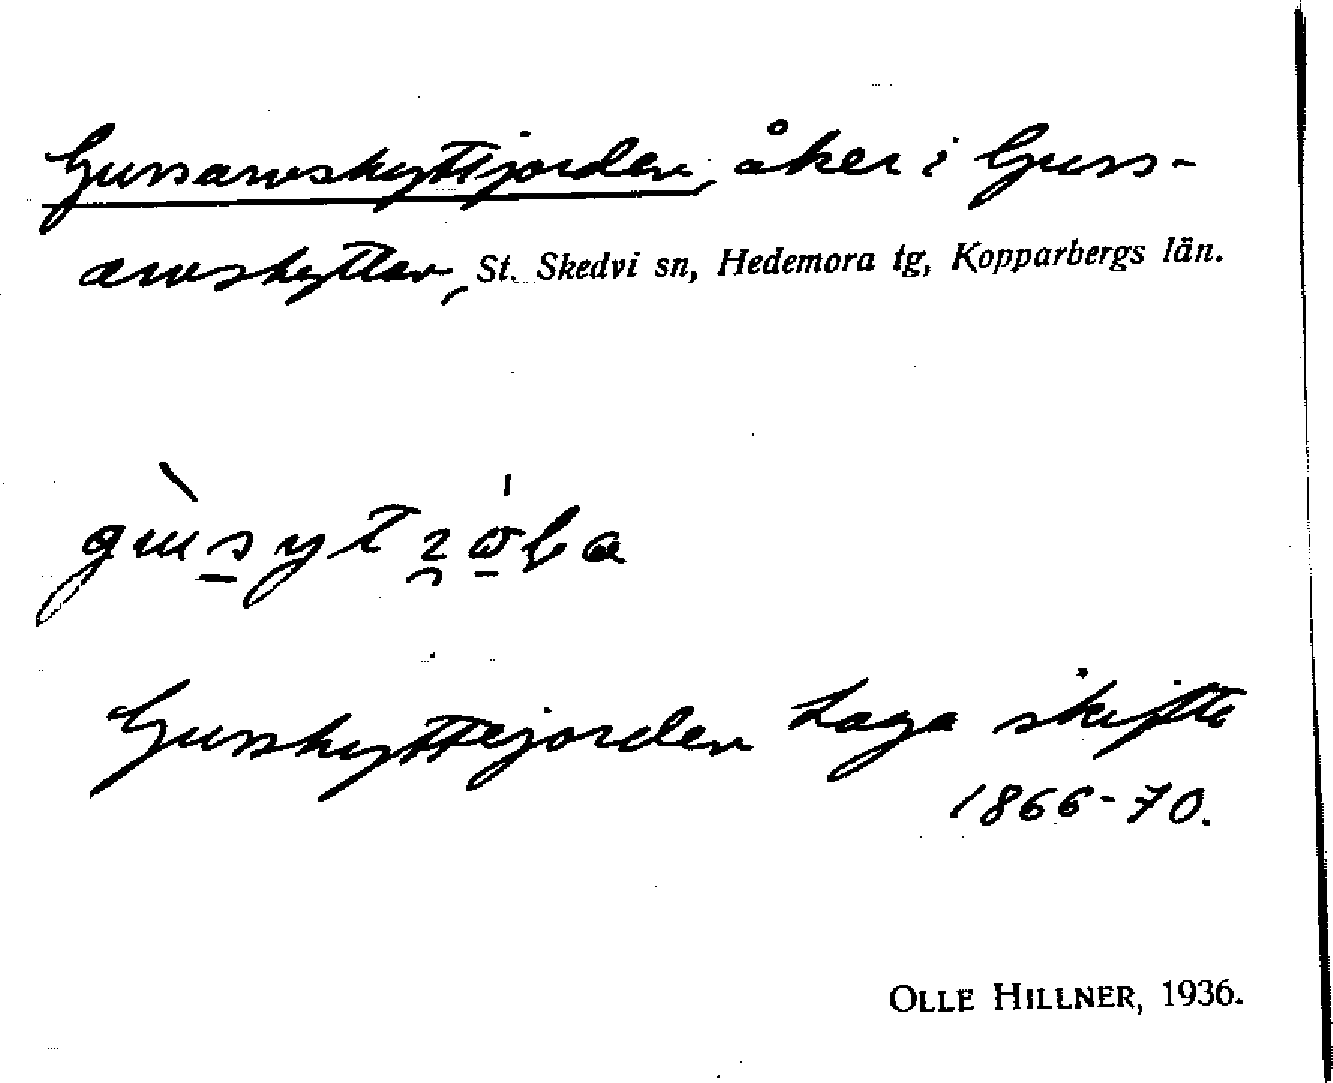 Gussarvskyttjorden, åker i Guss-
arvshyttan, St. Skedvi sn, Hedemora tg, Kopparbergs län.
Gusshyttejorden Laga skifte
1866-70.
OLLE HILLNER, 1936.